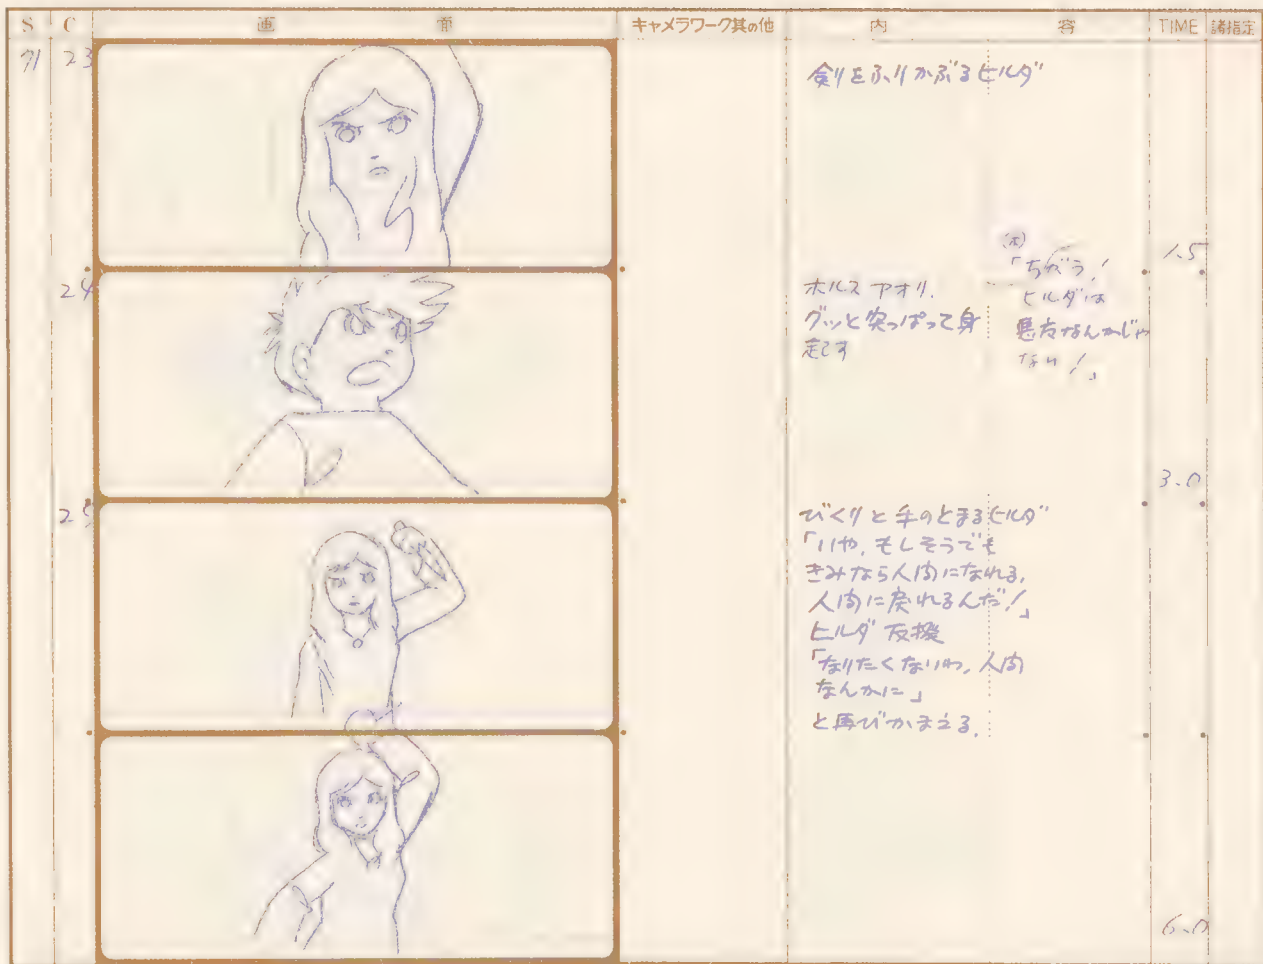 S C 画面 キャメラワーク其の他 内容 TIME 諸指定
71 23
剣をふりかぶるヒルダ
1.5
24
ホルス アオリ.
グッと突っぱって身
起こす
(ホ)
「ちがう!
ヒルダは
悪魔なんかじゃ
ない!」
3.0
25
びくりと手のとまるヒルダ
「いや、もしそうでも
きみなら人間になれる、
人間に戻れるんだ!」
ヒルダ 反撥
「なりたくないわ、人間
なんかに」
と再びかまえる.
6.0